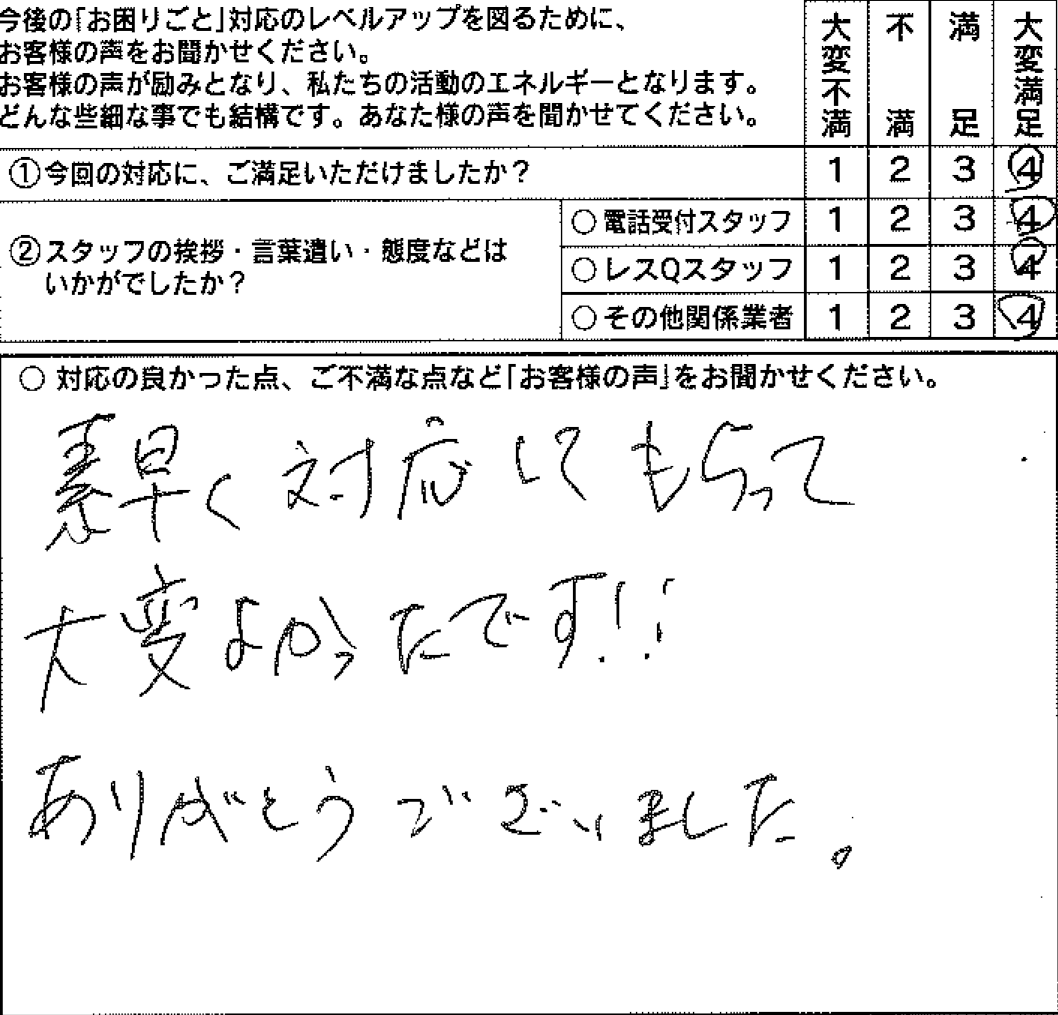 今後の「お困りごと」対応のレベルアップを図るために、
お客様の声をお聞かせください。
お客様の声が励みとなり、私たちの活動のエネルギーとなります。
どんな些細な事でも結構です。あなた様の声を聞かせてください。
大変不満 不満 満足 大変満足
①今回の対応に、ご満足いただけましたか? 1 2 3 4
②スタッフの挨拶・言葉遣い・態度などは
いかがでしたか?
○電話受付スタッフ 1 2 3 4
○レスQスタッフ 1 2 3 4
○その他関係業者 1 2 3 4
○ 対応の良かった点、ご不満な点など「お客様の声」をお聞かせください。
素早く対応してもらって
大変よかったです!!
ありがとうございました。